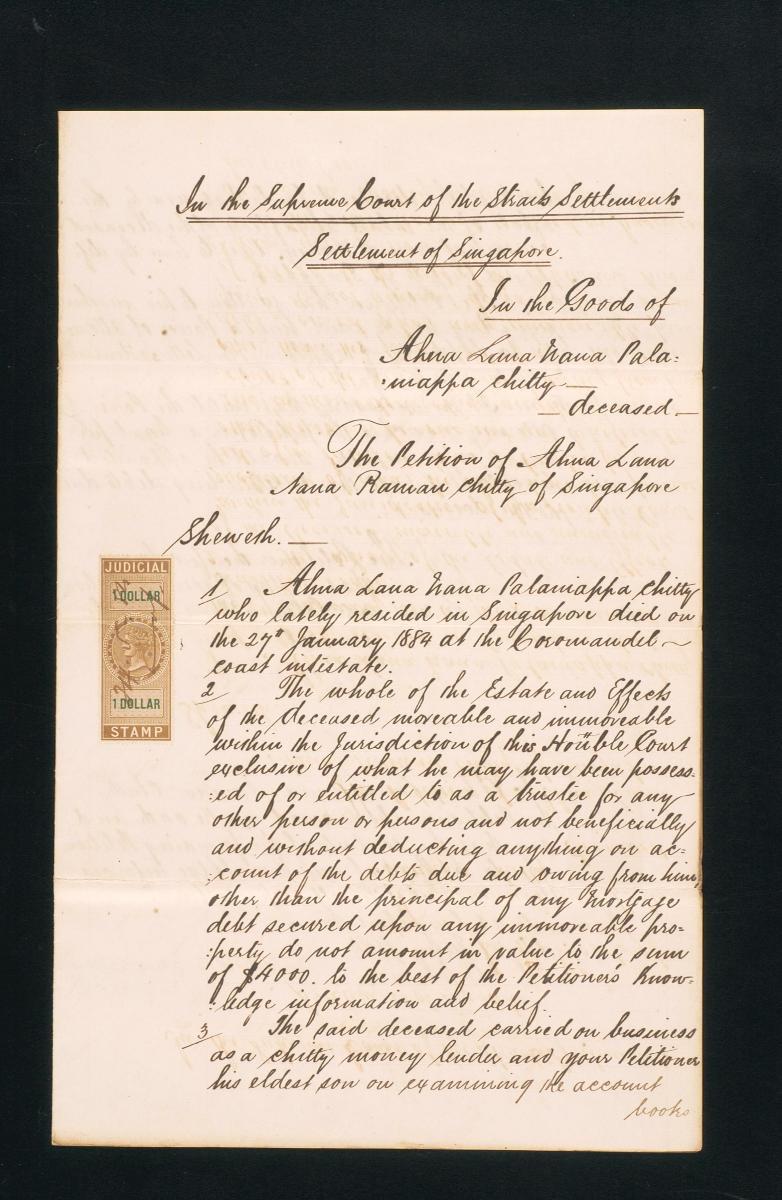 In the Supreme Court of the Straits Settlements
Settlement of Singapore.
In the Goods of
Ahna Lana Nana Pala=
:niappa Chitty —
— deceased —
The Petition of Ahna Lana
Nana Raman Chitty of Singapore
Sheweth. —
JUDICIAL
1 DOLLAR
1 DOLLAR
STAMP
1 Ahna Lana Nana Palaniappa Chitty
who lately resided in Singapore died on
the 27th January 1884 at the Coromandel ~
coast intestate.
2 The whole of the Estate and Effects
of the deceased moveable and immoveable
within the Jurisdiction of this Honble Court
exclusive of what he may have been possess=
:ed of or entitled to as a trustee for any
other person or persons and not beneficially
and without deducting anything on ac=
:count of the debts due and owing from him,
other than the principal of any Mortgage
debt secured upon any immoveable pro=
:perty do not amount in value to the sum
of $4000. to the best of the Petitioner's Know=
:ledge information and belief.
3 The said deceased carried on business
as a chitty money lender and your Petitioner
his eldest son on examining the account
books